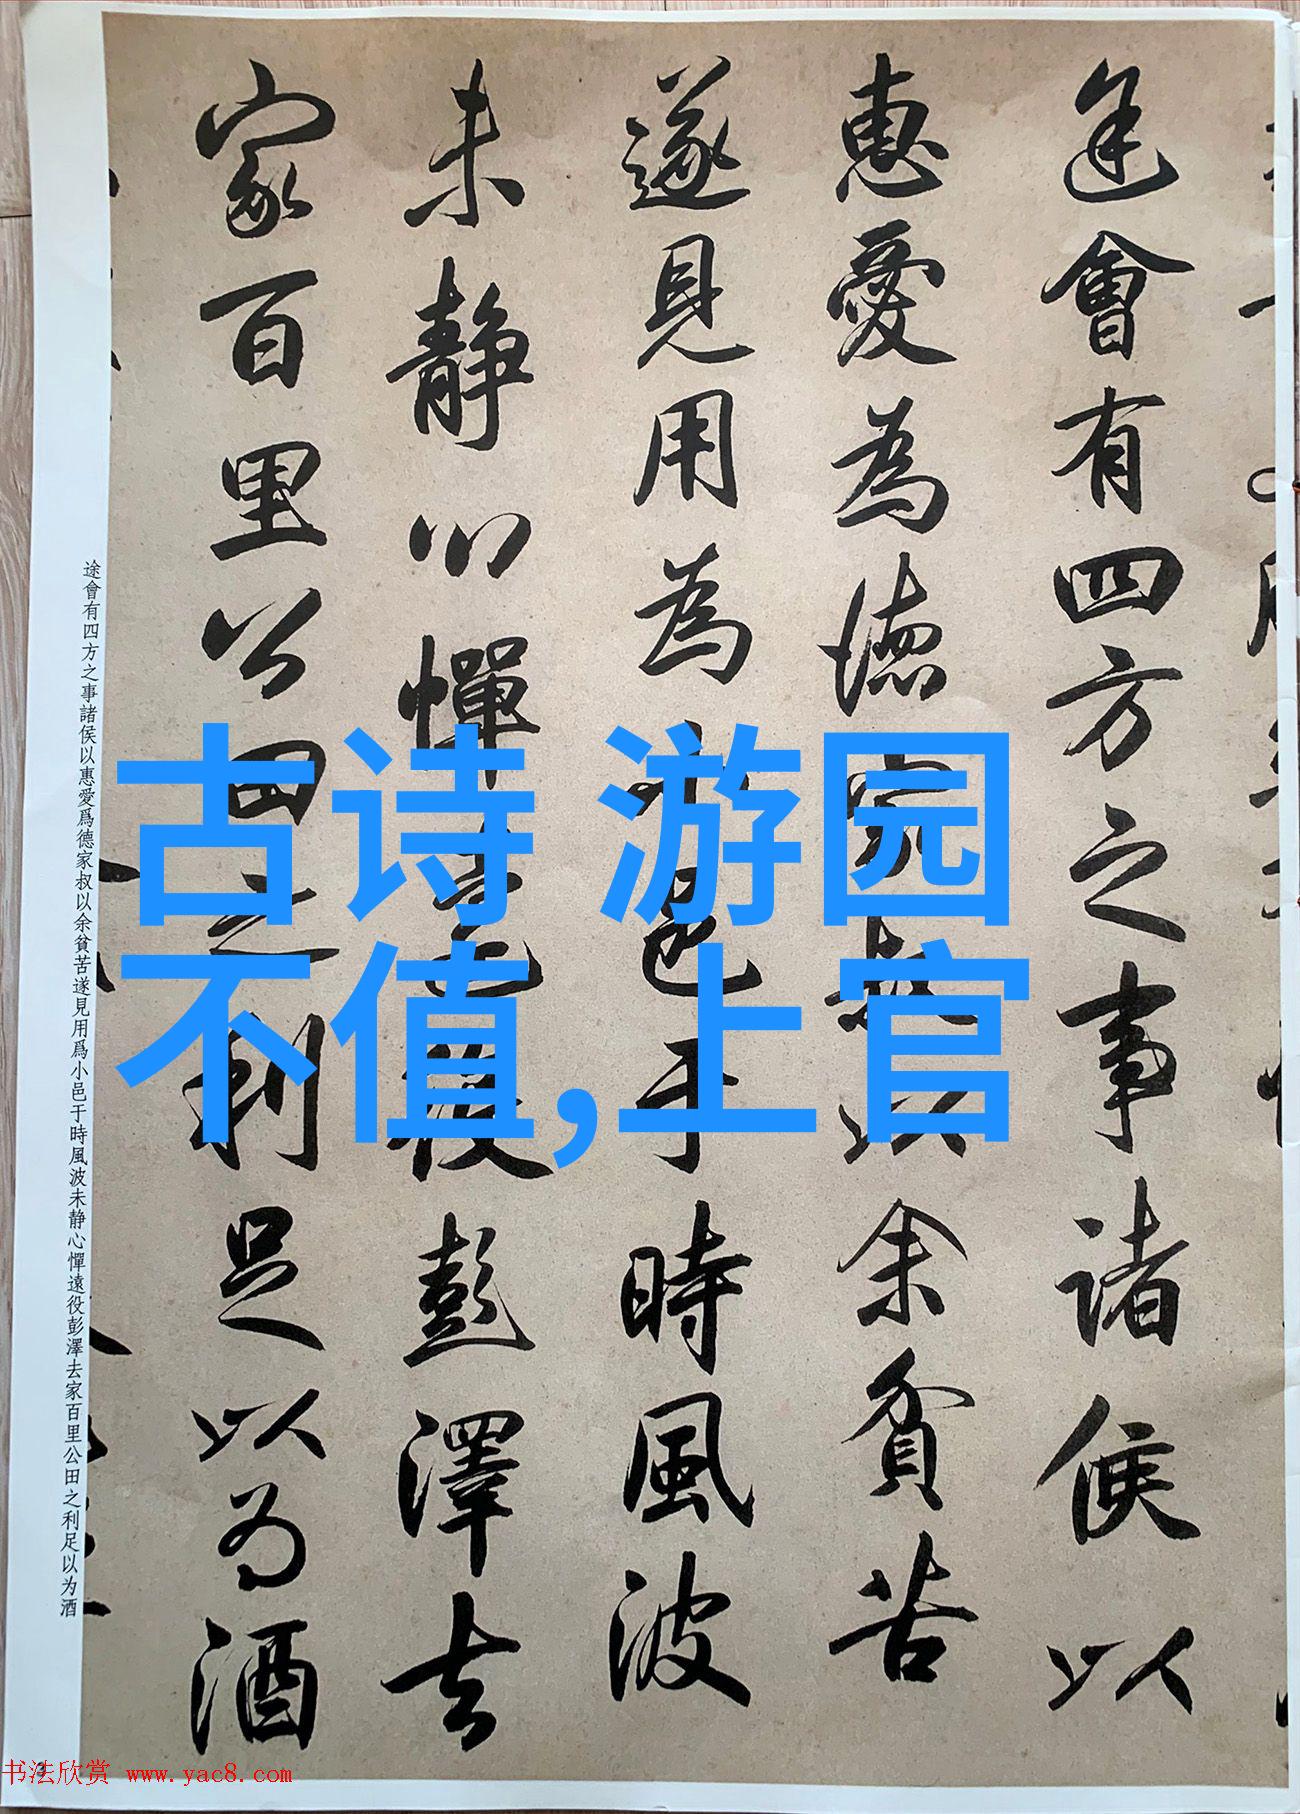 途會有四方之事諸侯以
惠愛為德家叔以余貧苦
遂見用為小邑于時風波
未靜心憚遠役彭澤去
家百里公田之利足以为酒
途會有四方之事諸侯以惠愛爲德家叔以余貧苦遂見用爲小邑于時風波未静心憚遠役彭澤去家百里公田之利足以为酒
古诗 游园
不值,上官
书法欣赏 www.yac8.com